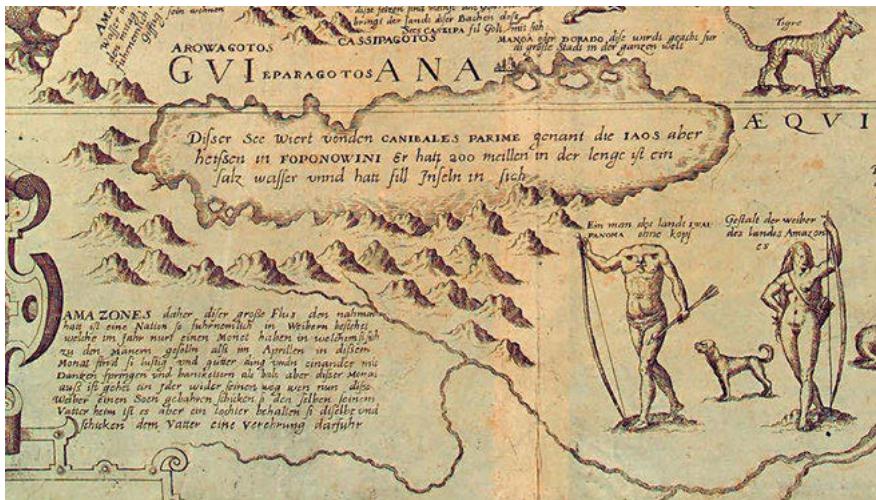 sein wohnen
AROWAGOTOS
CASSIPAGOTOS
See CASSIPA fil Golt mit sich
MANOA oder DORADO dise wurdt geacht fur
di größte Stadt in der ganzen welt
Tigre
GVI EPARAGOTOS ANA
ÆQVI
Disser See Wiert vonden CANIBALES PARIME genant die IAOS aber
heißen in FOPONOWINI Er hatt 200 meillen in der lenge ist ein
salz wasser vnnd hatt fill Inseln in sich
Ein man des landt IWAI
PANOMA ohne kopf
Gestalt der weiber
des landes Amazon
es
AMAZONES daher diser große Flus den nahmen
hatt ist eine Nation so fuhrnemlich in Weibern bestehet
welche im Jahr nurt einen Monet haben in welchim si sich
zu den Manern geselln alß im Aprillen in disem
Monat sind si lustig vnd gutter ding vndn einander mit
Danzen springen vnd banketiern als bald aber diser Monat
auß ist gehet ein Jder wider seinen weg wen nun dise
Weiber einen Soen gebahren schicken si den selben seinem
Vatter heim ist es aber ein tochter behalten si diselbe vnd
schicken dem Vatter eine Verehrung darfuhr